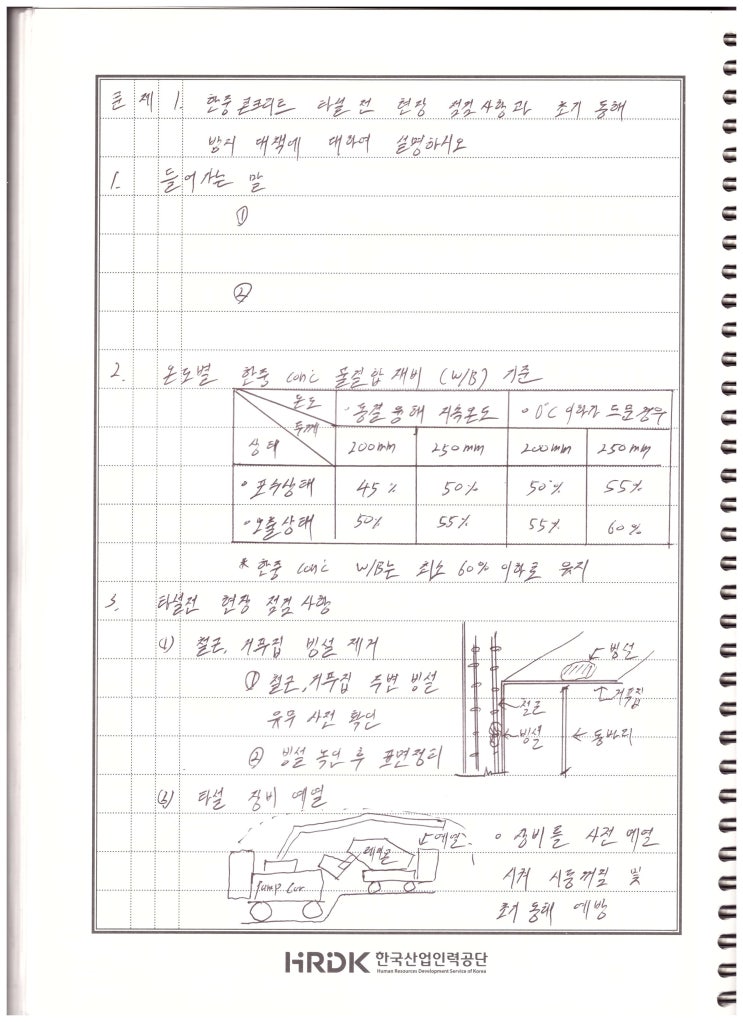 문제 1. 한중콘크리트 타설 전 현장 점검사항과 초기 동해
방지 대책에 대하여 설명하시오
1. 들어가는 말
①
②
2. 온도별 한중 conc 물결합재비 (W/B) 기준
온도 두께 상태
·동결융해 지속온도
·0°C 이하가 드문경우
200mm 250mm 200mm 250mm
·포수상태 45% 50% 50% 55%
·보통상태 50% 55% 55% 60%
* 한중 conc W/B는 최소 60% 이하로 유지
3. 타설전 현장 점검 사항
(1) 철근, 거푸집 빙설 제거
① 철근, 거푸집 주변 빙설
유무 사전 확인
② 빙설 녹인 후 표면정리
←빙설
거푸집
←철근
←빙설
←동바리
(2) 타설 장비 예열
←예열
레미콘
Pump Car
·장비를 사전 예열
시켜 시동꺼짐 및
초기동해 예방
HRDK 한국산업인력공단
Human Resources Development Service of Korea